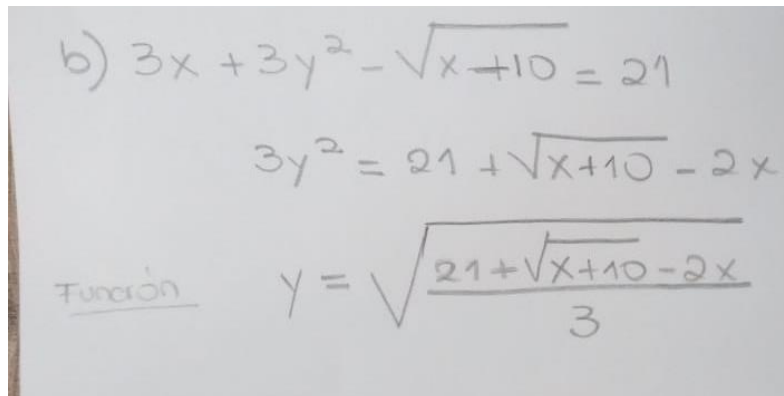 b) 3x + 3y² - √(x+10) = 21
3y² = 21 + √(x+10) - 2x
Función y = √((21+√(x+10)-2x)/3)